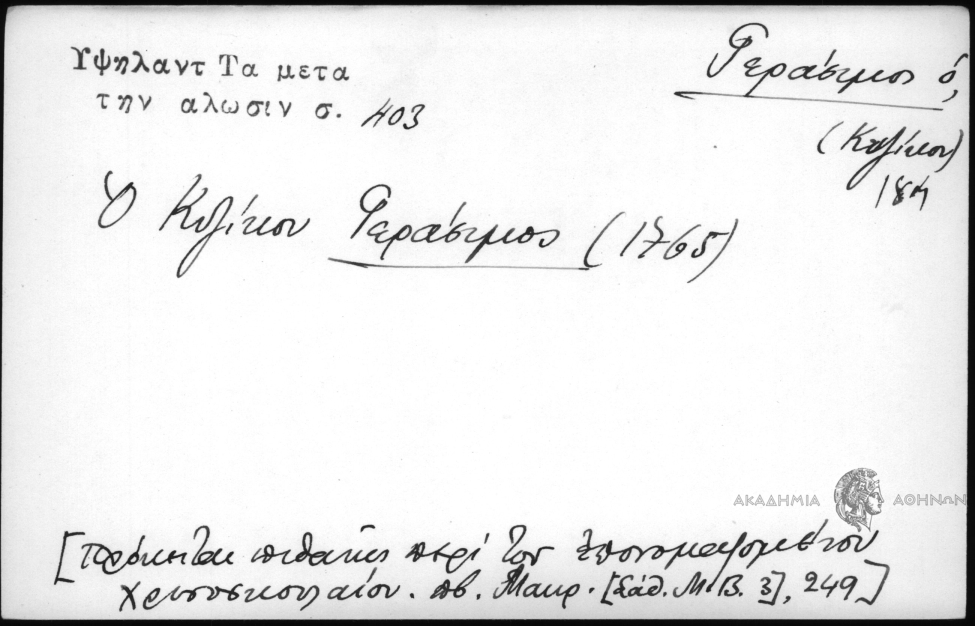 Υψηλαντ Τα μετα
την αλωσιν σ. 403
Γεράσιμος ὁ,
(Κυζίκου)
Ὁ Κυζίκου Γεράσιμος (1765)
ΑΚΑΔΗΜΙΑ ΑΘΗΝΩΝ
[πρόκειται πιθανῶς περί του ἐπονομαζομένου
Χρυσοσκουλαίου. πβ. Μακρ. [Σάθ. Μ.Β. 3], 249]